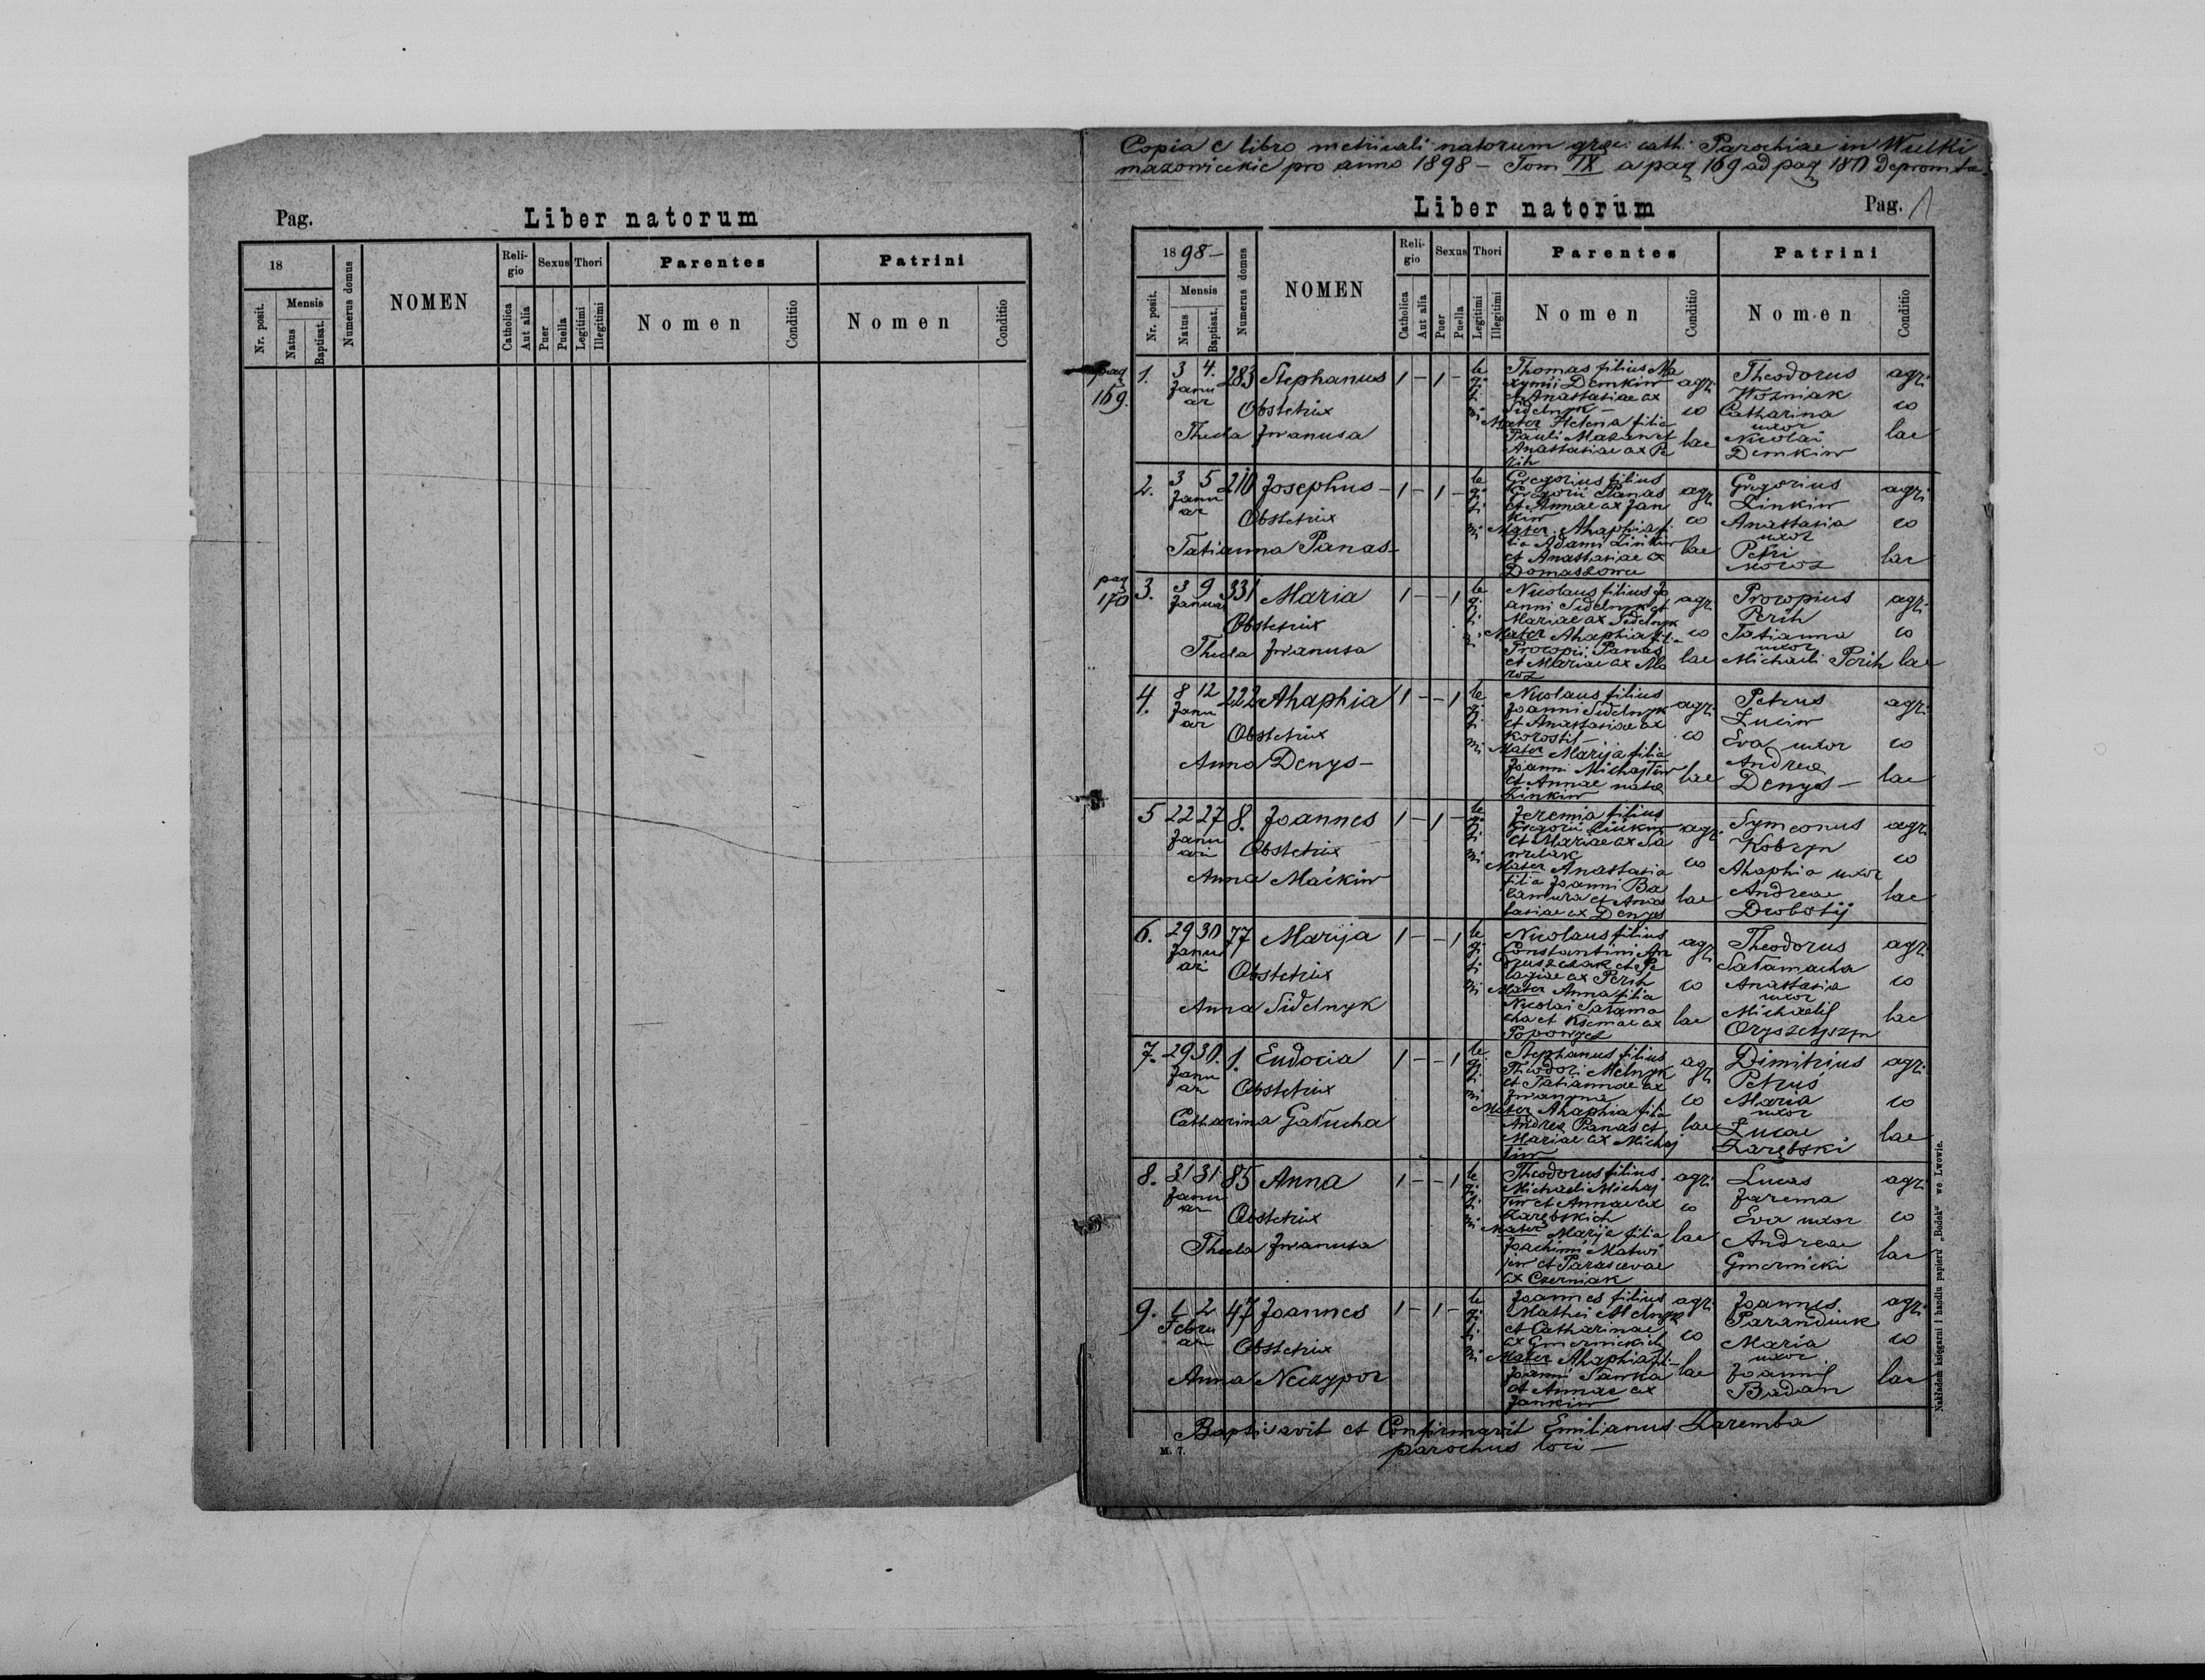 Pag.
Liber natorum
18
Numerus domus
NOMEN
Reli-
gio
Sexus
Thori
Parentes
Patrini
Nr. posit.
Mensis
Natus
Baptisat.
Catholica
Aut alia
Puer
Puella
Legitimi
Illegitimi
Nomen
Conditio
Nomen
Conditio
Copia e libro metricali natorum gręc: cath: Parochiae in Wulki
mazowieckie pro anno 1898 – Tom IX a pag 169 ad pag 180 Depromta.
Liber natorum
Pag. 1
1898 –
Numerus domus
NOMEN
Reli-
gio
Sexus
Thori
Parentes
Patrini
Nr. posit.
Mensis
Natus
Baptisat.
Catholica
Aut alia
Puer
Puella
Legitimi
Illegitimi
Nomen
Conditio
Nomen
Conditio
pag
169.
1. 3 4. 283 Stephanus 1 – 1 –
Janu
ar
Obstetrix
Thecla Iwanusa
le
gi
ti
mi
Thomas filius Ma
xymi Demkiw
et Anastasiae ex
Sidelnyk –
Mater Helena filia
Pauli Mazan et
Anastasiae ex Pe
rih
agri
co
lae
Theodorus
Wozniak
Catharina
uxor
Nicolai
Demkiw
agri
co
lae
2. 3 5 210 Josephus – 1 – 1 –
Janu
ar
Obstetrix
Tatianna Panas –
le
gi
ti
mi
Gregorius filius
Gregorii Panas
et Annae ex Jan
kiw
Mater Ahaphia fi
lia Adami Zinkiw
et Anastasiae ex
Domaszowu
agri
co
lae
Gregorius
Zinkiw
Anastasia
uxor
Petri
Moroz
agri
co
lae
pag
170
3. 3 9 331 Maria 1 – – 1
Januar
Obstetrix
Thecla Iwanusa
le
gi
ti
mi
Nicolaus filius Jo
anni Sidelnyk et
Mariae ex Sidelnyk
Mater Ahaphia filia
Procopii Panas
et Mariae ex Mo
roz
agri
co
lae
Procopius
Perih
Tatianna
uxor
Michaeli Perih
agri
co
lae
4. 8 12 222 Ahaphia 1 – – 1
Janu
ar
Obstetrix
Anna Denys –
le
gi
ti
mi
Nicolaus filius
Joanni Sidelnyk
et Anastasiae ex
Korostil –
Mater Marija filia
Joanni Michajliw
et Annae natae
Zinkiw
agri
co
lae
Petrus
Luciw
Eva uxor
Andreæ
Denys –
agri
co
lae
5 22 27 8. Joannes 1 – 1 –
Janu
ari
Obstetrix
Anna Maćkiw
le
gi
ti
mi
Jeremia filius
Gregorii Zinkiw
et Mariae ex Ta
Mater Anastasia
filia Joanni Ba
camura et Anas
tasiae ex Denys
agri
co
lae
Symeonus
Kobryn
Ahaphia uxor
Andreae
Drobotij
agri
co
lae
6. 29 30 77 Marija 1 – – 1
Janu
ari
Obstetrix
Anna Sidelnyk
le
gi
ti
mi
Nicolaus filius
Constantini An
druszczak et Pe
lagiae ex Perih
Mater Anna filia
Nicolai Sałama
cha et Kseniae ex
Popowycz
agri
co
lae
Theodorus
Sałamacha
Anastasia
uxor
Michaelis
Oryszczyszyn
agri
co
lae
7. 29 30. 1. Eudocia 1 – – 1
Janu
ar
Obstetrix
Catharina Gałucha
le
gi
ti
mi
Stephanus filius
Theodori Melnyk
et Tatiannae ex
Iwanyna
Mater Ahaphia filia
Andreæ Panas et
Mariae ex Michaj
liw
agri
co
lae
Dimitrius
Petruś
Maria
uxor
Lucae
Zarębski
agri
co
lae
8. 31 31 85 Anna 1 – – 1
Janu
ar
Obstetrix
Thecla Iwanusa
le
gi
ti
mi
Theodorus filius
Michaeli Michaj
liw et Annae ex
Zarębskich
Mater Marija filia
Joachimi Matwi
jiw et Parascevae
ex Czerniak
agri
co
lae
Lucas
Jarema
Eva uxor
Andreae
Gmernicki
agri
co
lae
9. 1 2 47 Joannes 1 – 1 –
Febru
ar
Obstetrix
Anna Neczypor
le
gi
ti
mi
Joannes filius
Mathei Melnyk
et Catharinae
ex Gmernickich
Mater Ahaphia fi –
Joanni Sawka
et Annae ex
Jankiw
agri
co
lae
Joannes
Paranduik
Maria
uxor
Joannis
Badan
agri
co
lae
Baptisavit et Confirmavit Emilianus Zaremba
parochus loci –
M. 7.
Nakładem księgarni i handlu papieru „Bodek“ we Lwowie.